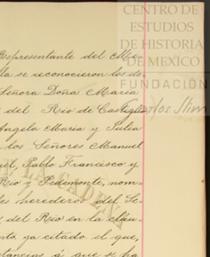 CENTRO DE
ESTUDIOS
DE HISTORIA
DE MEXICO
FUNDACIÓN
Carlos Slim
Representante del
la se reconocieron los de
Señora Doña Maria
del Rio de Castigl
Angela Maria y Julia
los Señores Manuel
uel, Pablo Francisco y
Rio y Pedemonte, nom
herederos del Se
del Rio en la cláu
nto, ya citado el que,
á que se ha